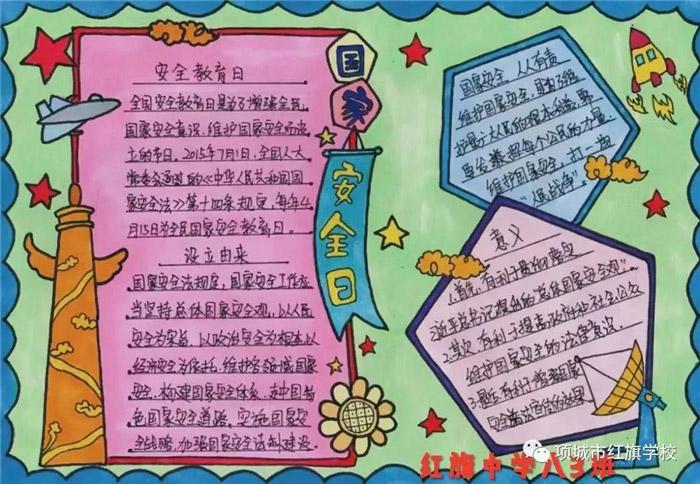 国家
安全日
安全教育日
全国安全教育日是为了增强全民
国家安全意识,维护国家安全而设
立的节日。2015年7月1日,全国人大
常委会通过的《中华人民共和国国
家安全法》第十四条规定,每年4
月15日为全民国家安全教育日。
设立由来
国家安全法规定,国家安全工作应
当坚持总体国家安全观,以人民
安全为宗旨,以政治安全为根本以
经济安全为依托,维护各领域国家
安全,构建国家安全体系,走中国特
色国家安全道路。实施国家安
全战略,加强国家安全法制建设.
国家安全 人人有责
维护国家安全,
护最广大人民的根本利益,事
要发挥每个公民的力量,
维护国家安全,打一场
“人民战争”.
意义
1.首先,有利于贯彻落实
习近平总书记提出的“总体国家安全观”
2.其次,有利于提高政府和社会公众
维护国家安全的法律意识.
3.最后,有利于增强国家
安全普法宣传的效果.
红旗中学八3班
项城市红旗学校